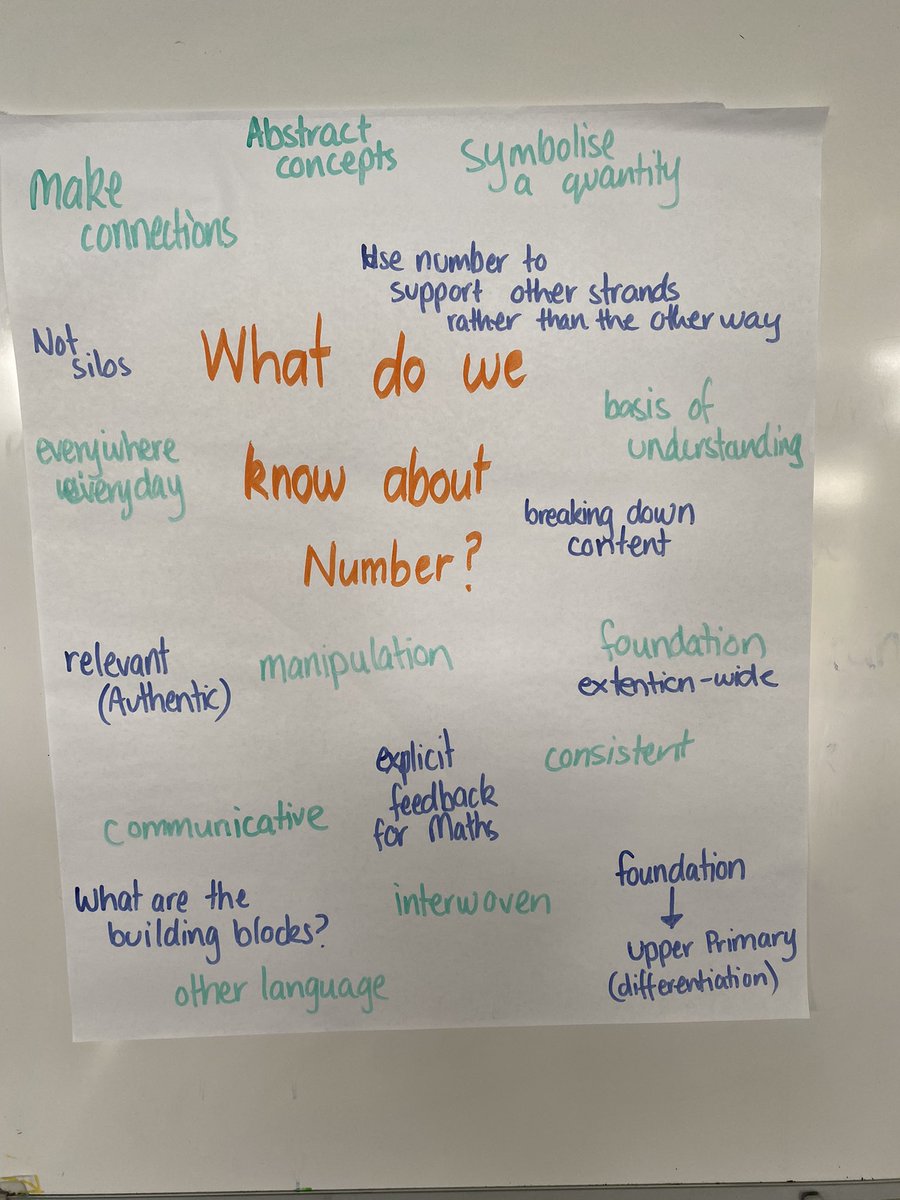 Abstract
concepts
Symbolise
a quantity
Make
connections
Use number to
support other strands
rather than the other way
Not
silos
What do we
know about
Number?
basis of
understanding
everywhere
everyday
breaking down
content
relevant
(Authentic)
manipulation
foundation
extention-wide
explicit
feedback
for Maths
consistent
communicative
What are the
building blocks?
interwoven
foundation
↓
upper Primary
(differentiation)
other language